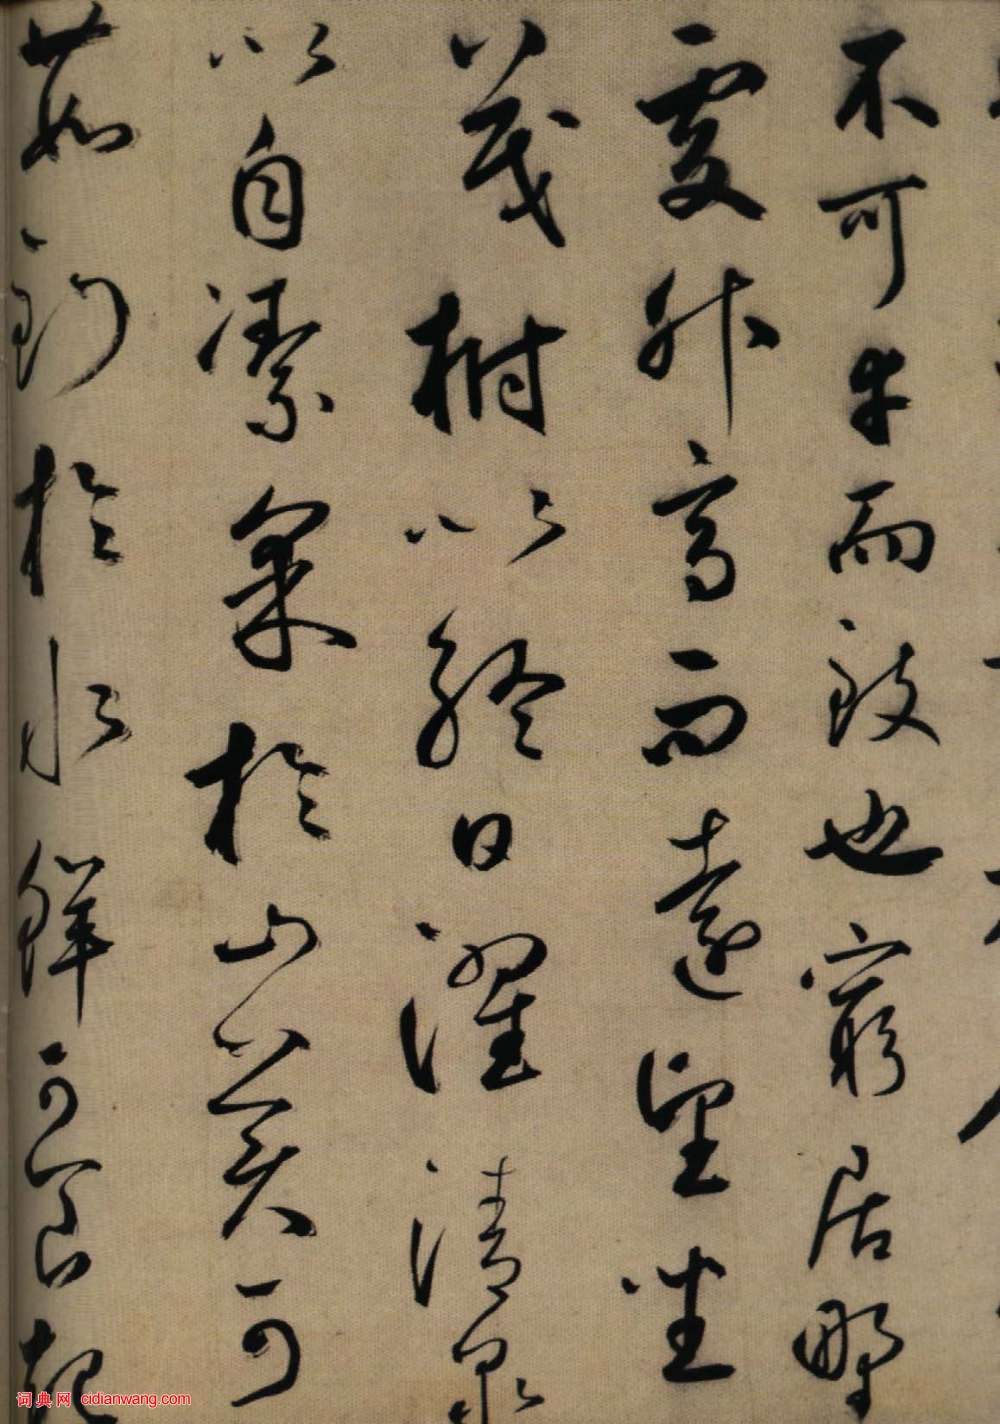 不可幸而致也窮居野
處升高而遠望坐
茂樹以終日濯清泉
以自潔采於山美可
茹釣於水鮮可食起
词典网 cidianwang.com